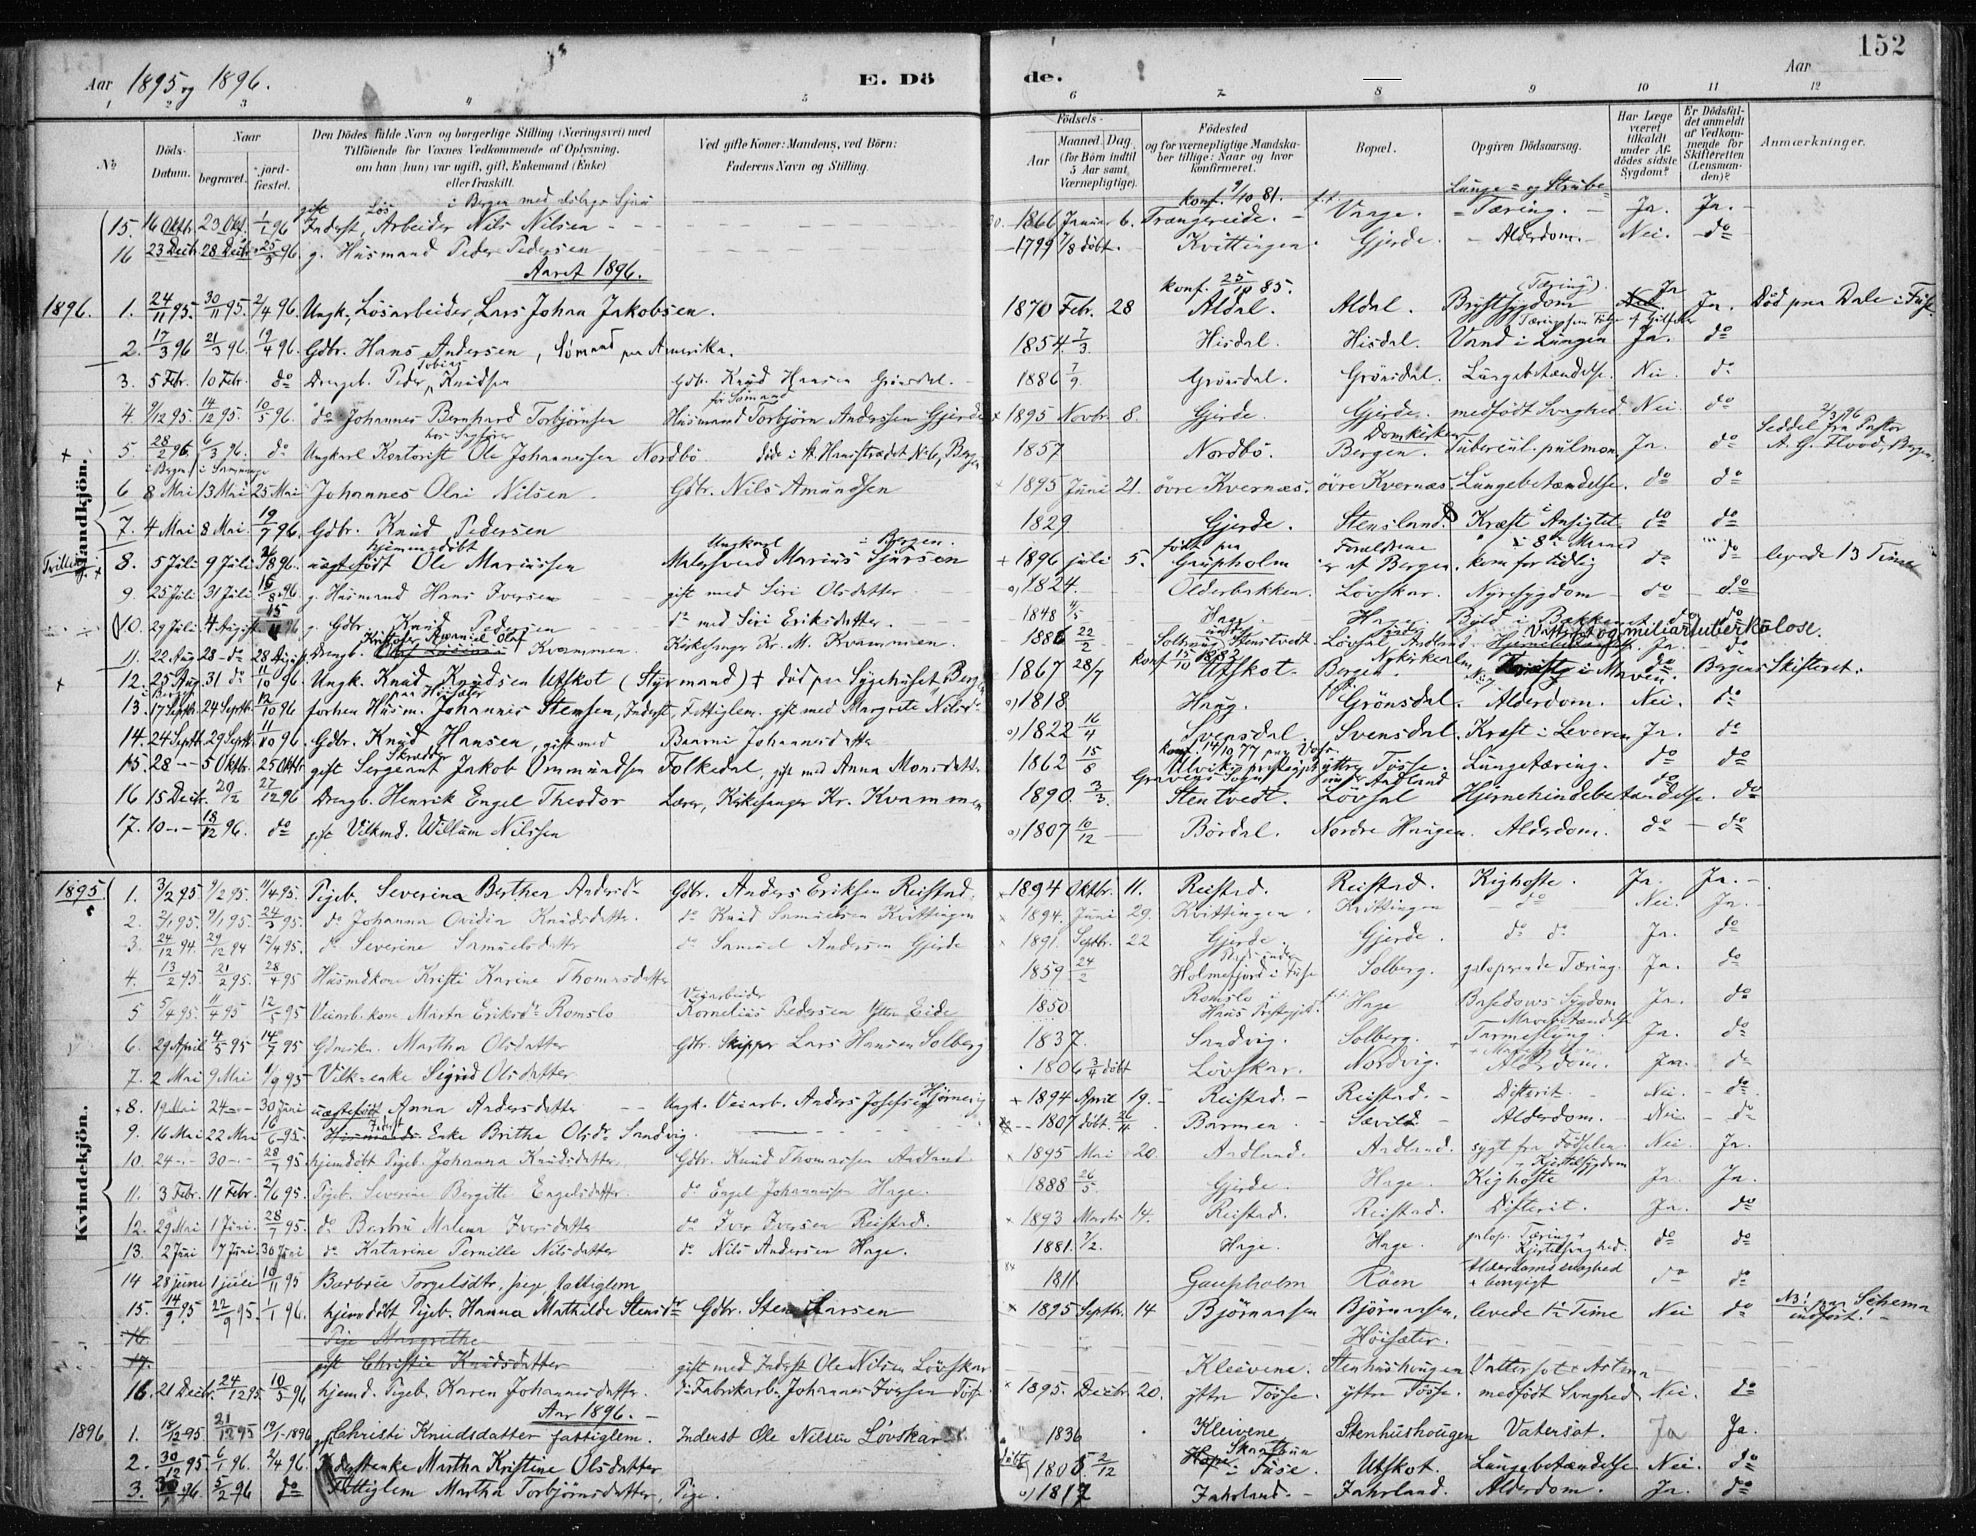 152
Aar 1895 og 1896. E. Dö de. Aar
1 2 3 4 5 6 7 8 9 10 11 12
No Döds-Datum. Naar begravet. jord-fæstet. Den Dödes fulde Navn og borgerlige Stilling (Næringsvei) med Tilföiende for Voxnes Vedkommende af Oplysning, om han (hun) var ugift, gift, Enkemand (Enke) eller fraskilt. Ved gifte Koner: Mandens, ved Börn: Faderens Navn og Stilling. Födsels- Aar Maaned. Dag. (for Börn indtil 5 Aar samt Værnepligtige). Födested og for værnepligtige Mandskaber tillige: Naar og hvor konfirmeret. Bopæl. Opgiven Dödsaarsag. Har Læge været tilkaldt under Afdödes sidste Sygdom? Er Dödsfaldet anmeldt af Vedkommende for Skifteretten (Lensmanden)? Anmærkninger.
Mandkjön.
15. 16 Oktbr. 23 Okt. 1/1 96 gift Inderst, Lös Arbeider Nils Nilsen 1866 Januar 6. Trængereide. konf. 9/10 81. Vaage. Lunge- og Strube-Tæring. Ja. Ja.
16 23 Decbr. 28 Decbr. 25/3 96. g. Husmand Peder Pedersen 1799 döbt. Kvittingen. Gjerde. Alderdom. Nei. do
Aaret 1896.
1896. 1. 24/11 95. 30/11 95. 2/4 96. Ungk. Lösarbeider, Lars Johan Jakobsen. 1870 Febr. 28 konf. 25/10 85. Aldal. Aldal. Brystsygdom (Tæring) Ja Ja. Död paa Dale i Fuse.
2. 17/3 96 21/3 96. 19/4 96. Gdbr. Hans Andersen, Sömand paa Amerika. 1854. 7/3. Hisdal. Hisdal. Vand i Lungen Ja. do
3. 5 Febr. 10 Febr. do Drengeb. Peder Tobias Knudsen Gdbr. Knud Hansen Grönsdal. 1886 7/9. Grönsdal. Grönsdal. Lungebetændelse. Nei. do
4. 9/12 95. 14/12 95. 10/5 96. do Johannes Bernhard Torbjörnsen Husmand Torbjörn Anderssen Gjerde 1895 Novbr. 8. Gjerde. Gjerde. medfödt Svaghed Nei. do
5 28/2 96. 6/3 96. do Ungkarl Kontorist Ole Johannessen Nordbö döde i St. Hansstrædet No 6, Bergen 1857 Nordbö. Domkirken Bergen. Tubercul. pulmon. Ja. do Seddel fra Pastor A. G. Flood, Bergen.
6 8 Mai 13 Mai 25 Mai Johannes Olai Nilsen. Gdbr. Nils Amundsen 1895 Juni 21. övre Kvernæs. övre Kvernæs. Lungebetændelse. do do
7. 4 Mai 8 Mai 19/7 96. Gdbr. Knud Pedersen 1829 Gjerde. Stensland. Kræft i Ansigtet do do
8. 5 Juli 9 Juli hjemmedöbt uægtefödt Ole Mariussen Ungkarl i Bergen. Malersvend Marius Sjursen 1896 juli 5. födt paa Gaupholm Forældrene er af Bergen. i 8de Maaned kom for tidlig do do levede 13 Timer
9. 25 Juli 31 Juli 16/8 96. g. Husmand Hans Iversen gift med Siri Olsdatter 1824. Olderbakken. Lövskar. Nyresygdom do do
10. 29 Juli 4 August g. Gdbr. Knud Pedersen do med Siri Eriksdatter. 1848 4/5
11. 22 Aug 28 do 28 Aug. Drengb. Kvammen. Kirkesanger Kr. M. Kvammen. 1886 22/2 Stensvedt Lövsal og miliærtuberkulose. Ja. do
12. 25 Aug. 31 do 96. Ungk. Knud Knudsen Utskot (Styrmand) † död paa Sygehuset, Bergen 1867 28/7 konf 15/10 1882 Utskot. Nykirken Bergen. i Maven. do Bergens Skifteret.
13. 17 Septbr. 24 Septbr. 12/10 96 forhen Husm. paa Höisæter Johannes Stensen, Inderst, Fattiglem. gift med Margrete Nilsd. 1818. Haug. Grönsdal. Alderdom. Nei. do
14. 24 Septbr. 29 Septb. 11/10 96. Gdbr. Knud Hansen, gift med Baarni Johannesdatter 1822 16/4 Svensdal. Svensdal. Kræft i Leveren Ja. do
15. 28 5 Oktbr. 25 Oktbr gift Skrædder Sergeant Jakob Ommundsen Folkedal, gift med Anna Monsdatter 1862 15/8 konf. 14/10 77 paa Voss. Ulvik præstegjeld ytter Tösse. Lungetæring. do do
16 15 Decbr. 20/12 27/12 96 Drengb. Henrik Engel Theodor Lærer, Kirkesanger Kr. Kvammen 1890. 3/3. Stentvedt. Lövsal under Aadland Hjernehindebetændelse. do do
17. 10 18/12 96. do gift Vilkmd. Willum Nilssen 1807 10/12 Bördal. Nordre Haugen. Alderdom. do do
Kvindekjön.
1895 1. 3/2 95 9/2 95. 11/4 95. Pigeb. Severina Berthea Andersd. Gdbr. Anders Eriksen Reistad. 1894 Oktbr. 11. Reistad. Reistad. Kighoste. Ja. Ja.
2. 2/1 95. 9/1 95. 24/3 95. do Johanna Ovidia Knudsdatter. do Knud Samuelsen Kvittingen 1894. Juni 29. Kvittingen. Kvittingen do Nei. Ja.
3. 24/12 94. 29/12 94 12/4 95. do Severine Samuelsdatter do Samuel Andersen Gjerde 1891. Septbr. 22 Gjerde. Gjerde. do do Ja. do
4. 13/2 95. 21/2 95. 28/4 95 Husmdkone Kristi Karine Thomasdatter 1859 24/2 Holmefjord i Fuse Solberg. galoperende Tæring. Ja. do
5 5/4 95. 11/4 95 12/5 95 Veiarb. kone Marta Eriksdr Romslo Veiarbeider Kornelius Pedersen Ytten Eide 1850. Romslo i Haus Prstgjd. Hage Basedows Sygdom Ja. do
6. 29 April 4/5 95 14/7 95 Gdmskn. Martha Olsdatter Gdbr. Skipper Lars Hansen Solberg 1837. Sandvig. Solberg. Mavebetændelse Tarmeslyng. Ja. do
7. 2 Mai 9 Mai 95 Vilk-enke Sigrid Olsdatter 1806 3/4 döbt Lövskar. Nordvig. Alderdom. Ja. do
8. 19 Mai 24 30 Juni uægtefödt Anna Andersdatter Ungk. Veiarb. Anders Josefsen Hjörnevig 1894 April 19. Reistad. Reistad. Difterit. Nei. do
9. 16 Mai 22 Mai 16/6 95. Enke Brithe Olsdr. Sandvig. 1807 döbt. 26/11 Barmen. Sævild Alderdom. Nei. do
10. 24 30 28/7 95 hjemdöbt Pigeb. Johanna Knudsdatter. Gdbr. Knud Thomassen Aadland. 1895 Mai 20. Aadland. Aadland. sygt fra Födselen. + Kjertelsygdom Nei. Ja.
11. 3 Febr. 11 Febr. 2/6 95. Pigeb. Severine Bergitte Engelsdatter. do Engel Johannessen Hage. 1888 26/5. Gjerde. Hage. Kighoste Ja. Ja.
12. 29 Mai 1 Juni. 28/7 95. do Barbru Malena Iversdatter do Iver Iversen Reistad. 1893 Marts 14. Reistad. Reistad. Difterit. Ja. do
13. 2 Juni 7 Juni. 30 Juni do Katarine Pernille Nilsdatter do Nils Andersen Hage. 1881. 7/2. Hage. Hage. galop. Tæring + Kjertelsvaghed. do do
14 28 juni 1 juli 10/11 95 Barbrue Torgelsdtr, pige, fattiglem 1811 Gaupholm Röen Alderdomssvaghed do do
15. 14/9 95 22/9 95. 1/1 96. hjemdöbt Pigeb. Hanna Mathilde Stensdr. Gdbr. Sten Larsen 1895 Septbr. 14 Björnaasen Björnaasen. levede 1/2 Time Nei do NB! paa Schema indfört!
16. Pige Margrethe Höisæter.
17. gift Christie Knudsdatter gift med Inderst Ole Nilsen Lövskar Kleivene. Stenhushougen Vattersot + Astma
16. 21 Decbr. 24/12 95. 10/5 96 hjemd. Pigeb. Karen Johannesdatter. Fabrikarb. Johannes Iversen Tösse. 1895. Decbr. 20. ytter Tösse. ytter Tösse. medfödt Svaghed Nei. do
Aar 1896.
1896 1. 18/12 95 21/12 95 19/1-1896 Christi Knudsdatter fattiglem. Inderst Ole Nilsen Lövskar 1836 Kleivene Stenhushougen Vatersot. Ja Ja.
2. 30/12 95. 6/1 96. 2/4 96. Inderstenke Martha Kristine Olsdatter döbt 1805 2/12 Skaathun i Fuse. Utskot. Lungebetændelse Nei. do
3. 96 5/2 96 do Fattiglem Martha Torbjörnsdatter, Pige. 1817 Fahrland. Fahrland. Alderdom. Ja. do